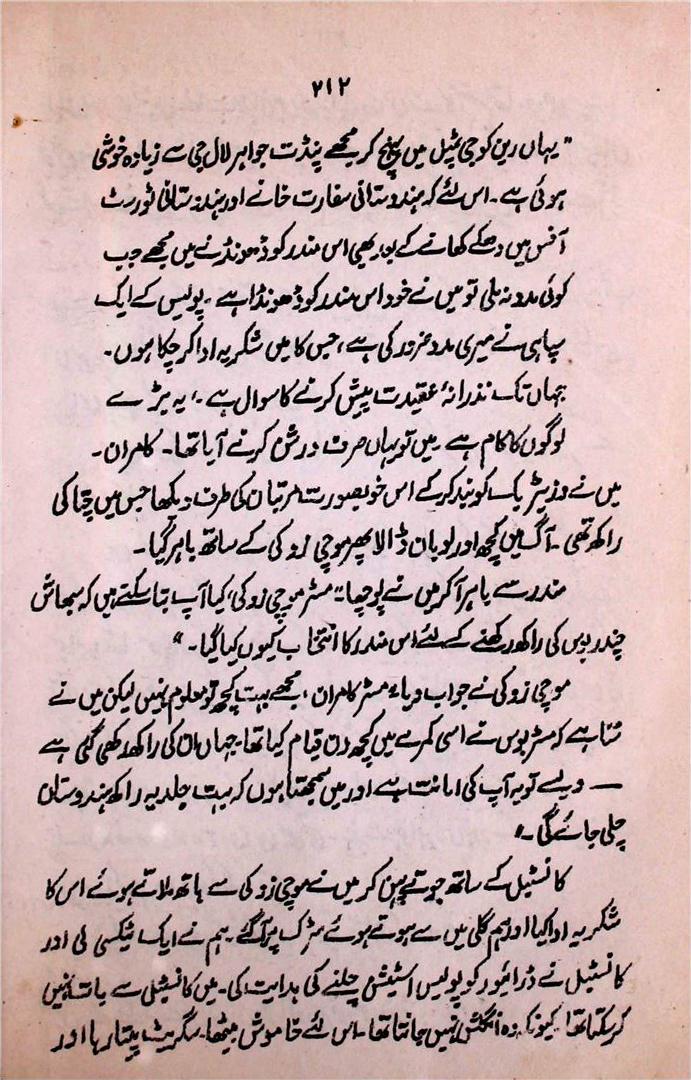 ۲۱۲
"یہاں رین کوجی ٹمپل میں پہنچ کر مجھے پنڈت جواہر لال جی سے زیادہ خوشی
ہوئی ہے۔ اس لئے کہ ہندوستانی سفارت خانے اور ہندوستانی ٹورسٹ
آفس میں دھکے کھانے کے بعد بھی اس مندر کو ڈھونڈنے میں مجھے جب
کوئی مدد نہ ملی تو میں نے خود اس مندر کو ڈھونڈا ہے۔ پولیس کے ایک
سپاہی نے میری مدد ضرور کی ہے، جس کا میں شکریہ ادا کر چکا ہوں۔
جہاں تک نذرانۂ عقیدت پیش کرنے کا سوال ہے۔ یہ بڑے
لوگوں کا کام ہے۔ میں تو یہاں صرف درشن کرنے آیا تھا۔ کامران۔
میں نے وزیٹر بک کو بند کرکے اس خوبصورت مرتبان کی طرف دیکھا جس میں چتا کی
راکھ تھی۔ آگ میں کچھ اور لوبان ڈالا پھر موچی زوکی کے ساتھ باہر گیا۔
مندر سے باہر آکر میں نے پوچھا "مسٹر موچی زوکی، کیا آپ بتا سکتے ہیں کہ سبھاش
چندر بوس کی راکھ رکھنے کے لئے اس مندر کا انتخاب کیوں کیا گیا۔"
موچی زوکی نے جواب دیا، مسٹر کامران، مجھے بہت کچھ تو معلوم نہیں لیکن میں نے
سنا ہے کہ مسٹر بوس نے اسی کمرے میں کچھ دن قیام کیا تھا۔ جہاں ان کی راکھ رکھی گئی ہے
— ویسے تو یہ آپ کی امانت ہے اور میں سمجھتا ہوں کہ بہت جلد یہ راکھ ہندوستان
چلی جائے گی۔"
کانسٹبل کے ساتھ جوتے پہن کر میں نے موچی زوکی سے ہاتھ ملاتے ہوئے اس کا
شکریہ ادا کیا اور ہم گلی میں سے ہوتے ہوئے سڑک پر آگئے۔ ہم نے ایک ٹیکسی لی اور
کانسٹبل نے ڈرائیور کو پولیس اسٹیشن چلنے کی ہدایت کی۔ میں کانسٹبل سے بات نہیں
کر سکتا تھا۔ کیونکہ وہ انگلش نہیں جانتا تھا۔ اس لئے خاموش بیٹھا۔ سگریٹ پیتا رہا اور